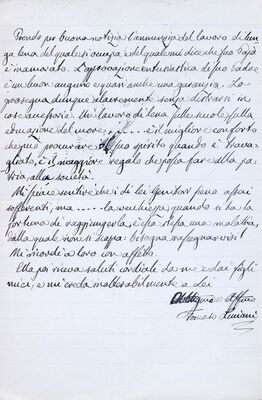 Prendo per buona notizia l'annunzio del lavoro di lun-
ga lena del quale si occupa e del quale mi dice che suo Papà
è innamorato. L'approvazione entusiastica di suo Padre
è un buon augurio e quasi anche una garanzia. La
prosegua dunque alacremente senza distrarsi in
cose accessorie. Un lavoro di lena sulle scuole sulla
educazione del cuore, ..... è il migliore conforto
che può procurare al suo spirito quando è trava-
gliato; è il maggiore regalo che possa fare alla pa-
tria, alla società.
Mi spiace sentire che i di lei genitori sieno assai
sofferenti, ma ..... la vecchiaja quando si ha la
fortuna di raggiungerla, è essa stessa una malattia,
dalla quale non si scappa: bisogna rassegnarvisi!
Mi ricordi a loro con affetto.
Ella poi riceva saluti cordiali da me e dai figli
miei, e mi creda inalterabilmente a lei
Obbligmo Affmo
Tomaso Luciani